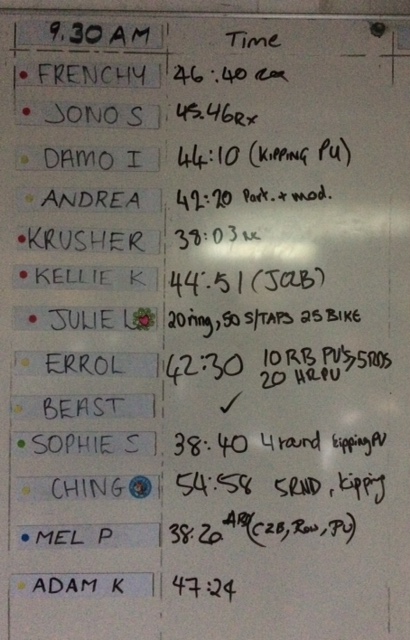 9.30 AM Time
FRENCHY 46:40 Rx
JONO S 45.46 Rx
DAMO I 44:10 (KIPPING PU)
ANDREA 42:20 Part. + mod.
KRUSHER 38:03 Rx
KELLIE K 44:51 (JOLB)
JULIE L 20 ring, 50 S/TAPS 25 BIKE
ERROL 42:30 10 RB PU'S > 5RDS
20 HRPU
BEAST ✓
SOPHIE S 38:40 4 round kipping PU
CHING 54:58 5RND, kipping
MEL P 38:20 (C2B, Row, PU)
ADAM K 47:24